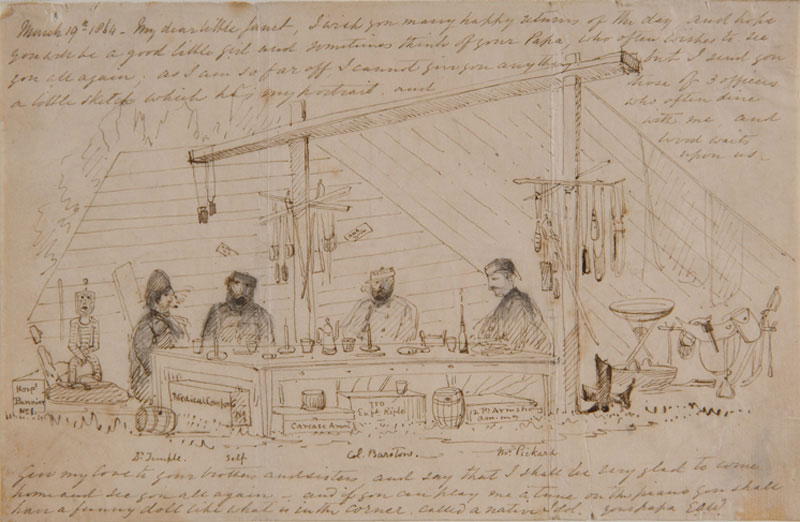 March 19th 1864 - My dear little Janet, I wish you many happy returns of the day and hope
you will be a good little girl and sometimes think of your Papa, who often wishes to see
you all again; as I am so far off I cannot give you anything but I send you
a little sketch which has my portrait and those of 3 officers
who often dine
with me and
Wood waits
upon us.
Hospl
No 1.
Medical Comforts
Carcase Amn
150
Enfd Rifle
12 Pr Armstrong
Ammn
Dr Temple. Self Col. Barstow. Mr Pickard
Give my love to your brothers and sisters, and say that I shall be very glad to come
home and see you all again - and if you can play me a tune on the piano you shall
have a funny doll like what is in the corner, called a native Idol. your papa